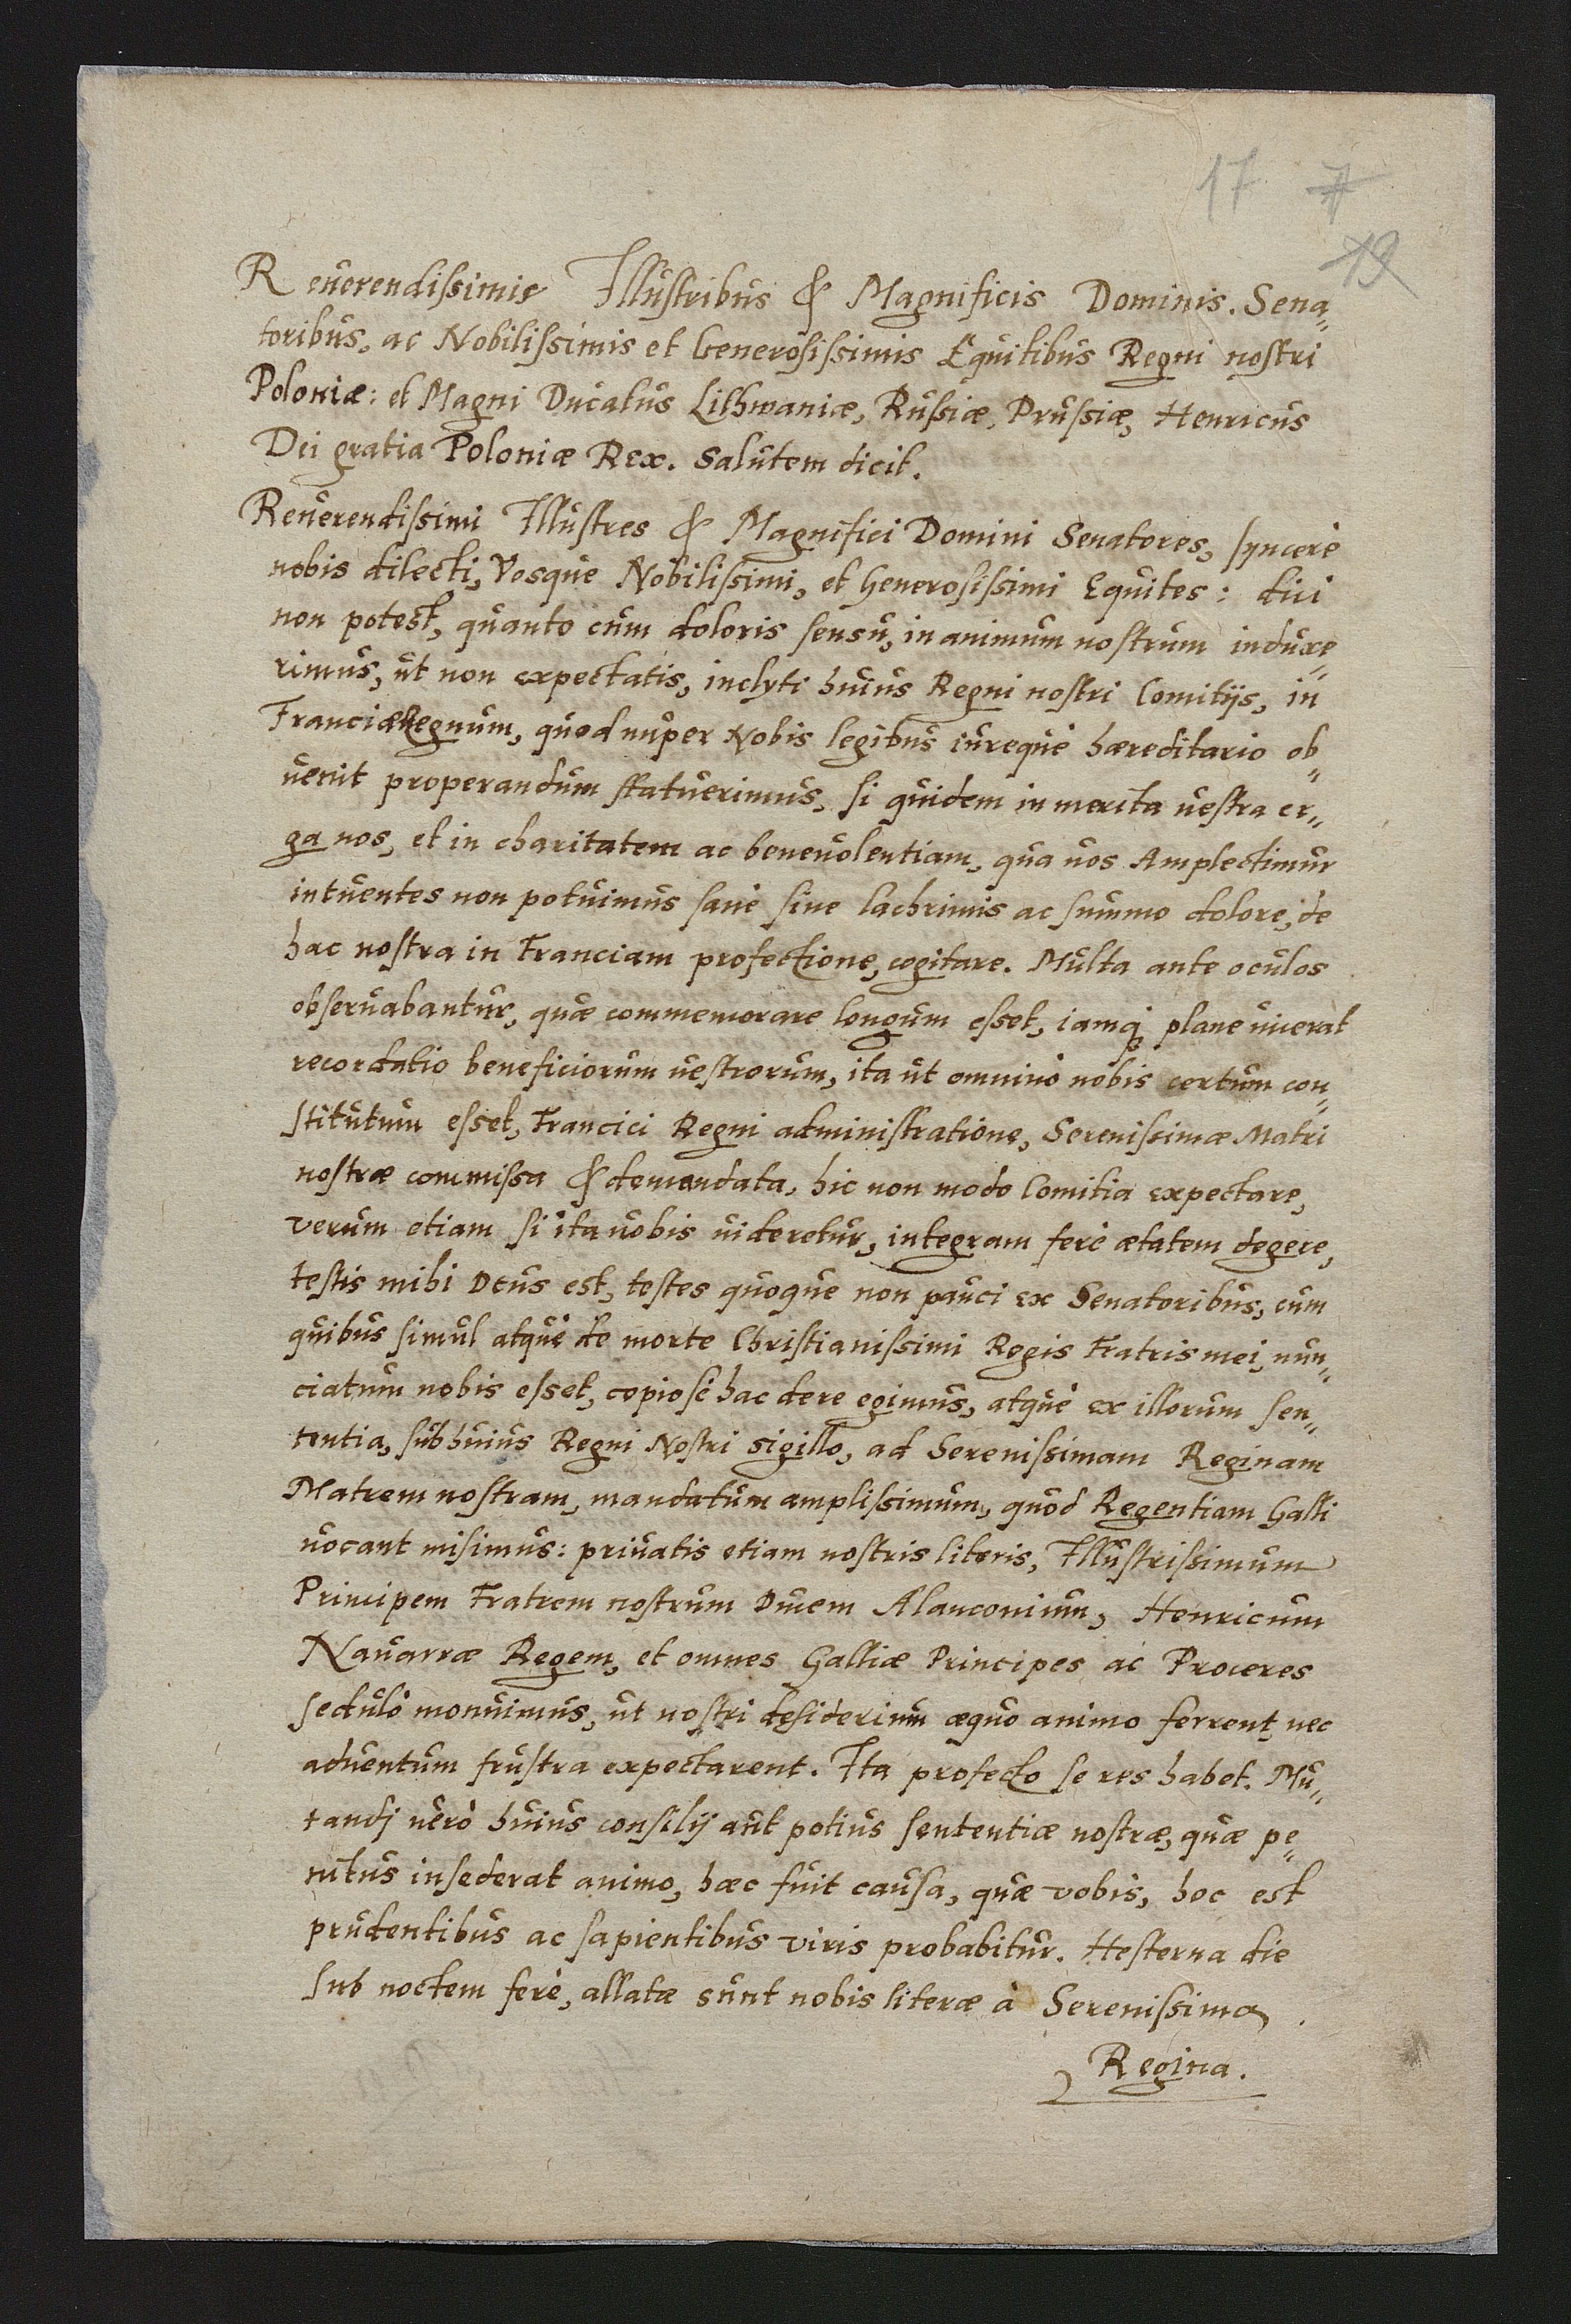 17 7
19
Reuerendissimis Illustribus & Magnificis Dominis. Sena„
toribus, ac Nobilissimis et Generosissimis Equitibus Regni nostri
Poloniæ: et Magni Ducatus Lithwaniæ, Russiæ, Prussiæ, Henricus
Dei gratia Poloniæ Rex. Salutem dicit.
Reuerendissimi Illustres & Magnifici Domini Senatores, syncerè
nobis dilecti, Vosque Nobilissimi, et Generosissimi Equites: dici
non potest, quanto cum doloris sensu, in animum nostrum induxe„
rimus, ut non expectatis, inclyti huius Regni nostri Comitijs, in
Franciæ Regnum, quod nuper Nobis legibus iureque hæreditario ob„
uenit properandum statuerimus, si quidem in merita uestra er„
ga nos, et in charitatem ac beneuolentiam, qua uos Amplectimur
intuentes non potuimus sanè sine lachrimis ac summo dolore, de
hac nostra in Franciam profectione, cogitare. Multa ante oculos
obseruabantur, quæ commemorare longum esset, iamq; plane uicerat
recordatio beneficiorum uestrorum, ita ut omninò nobis certum con„
stitutum esset, Francici Regni administratione, Serenissimæ Matri
nostræ commissa & demandata, hic non modo Comitia expectare,
verum etiam si ita uobis uideretur, integram ferè ætatem degere,
testis mihi Deus est, testes quoque non pauci ex Senatoribus, cum
quibus simul atque de morte Christianissimi Regis Fratris mei, nun„
ciatum nobis esset, copiosè hac dere egimus, atque ex illorum sen„
tentia, sub huius Regni Nostri sigillo, ad Serenissimam Reginam
Matrem nostram, mandatum amplissimum, quod Regentiam Galli
uocant misimus: priuatis etiam nostris literis, Illustrissimum
Principem Fratrem nostrum Ducem Alanconium, Henricum
Nauarræ Regem, et omnes Galliæ Principes ac Proceres
sedulò monuimus, ut nostri desiderium æquo animo ferrent, nec
aduentum frustra expectarent. Ita profecto se res habet. Mu„
tandj uerò huius consilij aut potius sententiæ nostræ, quæ pe„
nitus insederat animo, hæc fuit causa, quæ vobis, hoc est
prudentibus ac sapientibus viris probabitur. Hesterna die
sub noctem ferè, allatæ sunt nobis literæ à Serenissima
Regina.